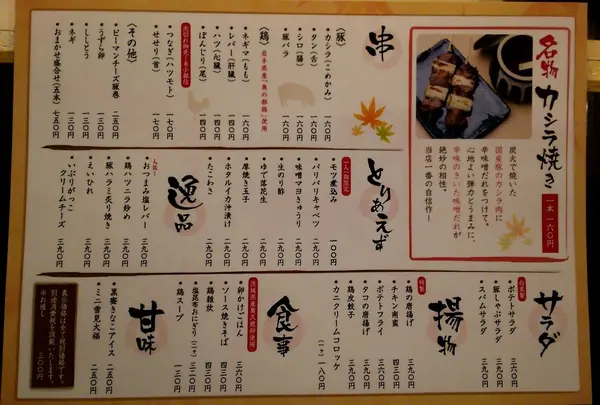 名物
カシラ焼き
一本 一六〇円
炭火で焼いた
国産豚のカシラ肉に
辛味噌だれをつけて。
心地よい弾力とうまみに、
辛味のきいた味噌だれが
絶妙の相性。
当店一番の自信作！
串
〈豚〉
・カシラ（こめかみ） 一六〇
・タン（舌） 一六〇
・シロ（腸） 一六〇
・豚バラ 一六〇
〈鶏〉
岩手県産「奥の都鶏」使用
・ネギマ（もも） 一六〇
・レバー（肝臓） 一四〇
・ハツ（心臓） 一四〇
・ぼんじり（尾） 一四〇
・つなぎ（ハツモト） 一七〇
・せせり（首） 一七〇
〈その他〉
・ピーマンチーズ豚巻 二五〇
・うずら卵 一三〇
・ししとう 一三〇
・ネギ 一三〇
・おまかせ盛合せ（五本） 七五〇
とりあえず
一人一個限定
・モツ煮込み 一〇〇
・バリバリキャベツ 二九〇
・味噌マヨきゅうり 二九〇
・生のり酢 二九〇
・ゆで落花生 二九〇
・厚焼き玉子 二九〇
・ホタルイカ沖漬け 二九〇
・たこわさ 二九〇
逸品
人気！
・おつまみ塩レバー 三九〇
・鶏ハツニラ炒め 三九〇
・豚ハラミ炙り焼き 三九〇
・えいひれ 三九〇
・いぶりがっこ
クリームチーズ 三九〇
サラダ
自家製
・ポテトサラダ 三六〇
・豚しゃぶサラダ 三九〇
・スパムサラダ 三九〇
揚物
特製
・鶏の唐揚げ 三九〇
・チキン南蛮 四三〇
・ポテトフライ 三六〇
・タコの唐揚げ 三九〇
・鶏皮餃子 三九〇
・カニクリームコロッケ
（二ヶ）一八〇
食事
茨城県産奥久慈卵使用
・卵かけごはん 三六〇
・ソース焼きそば 四三〇
・鶏雑炊 四三〇
・塩昆布おにぎり（二ヶ） 二三〇
・鶏スープ 一三〇
甘味
・黒蜜きなこアイス 二五〇
・ミニ雪見大福 二五〇
表示価格は全て税別価格です。
別途消費税を頂戴いたします。
※お通し 三〇〇円